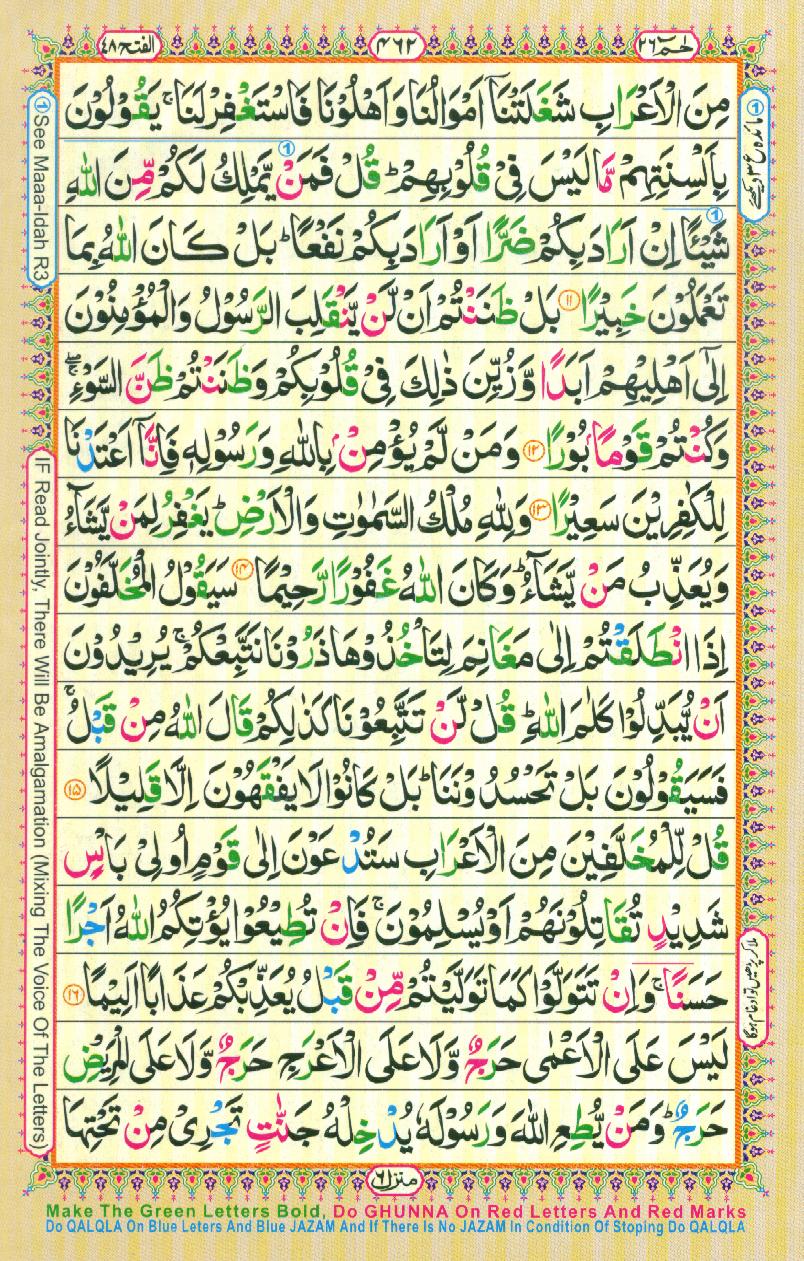 الفتح ٤٨
٤٦٢
حٰمٓ ٢٦
مِنَ الْاَعْرَابِ شَغَلَتْنَاۤ اَمْوَالُنَا وَاَهْلُوْنَا فَاسْتَغْفِرْ لَنَا ۚ يَقُوْلُوْنَ
بِاَلْسِنَتِهِمْ مَّا لَيْسَ فِىْ قُلُوْبِهِمْ ؕ قُلْ فَمَنْ يَّمْلِكُ لَكُمْ مِّنَ اللّٰهِ
شَيْـًٔا اِنْ اَرَادَ بِكُمْ ضَرًّا اَوْ اَرَادَ بِكُمْ نَفْعًا ؕ بَلْ كَانَ اللّٰهُ بِمَا
تَعْمَلُوْنَ خَبِيْرًا ۱۱ بَلْ ظَنَنْتُمْ اَنْ لَّنْ يَّنْقَلِبَ الرَّسُوْلُ وَالْمُؤْمِنُوْنَ
اِلٰۤى اَهْلِيْهِمْ اَبَدًا وَّزُيِّنَ ذٰلِكَ فِىْ قُلُوْبِكُمْ وَظَنَنْتُمْ ظَنَّ السَّوْءِ ۖۚ
وَكُنْتُمْ قَوْمًۢا بُوْرًا ۱۲ وَمَنْ لَّمْ يُؤْمِنْۢ بِاللّٰهِ وَرَسُوْلِهٖ فَاِنَّاۤ اَعْتَدْنَا
لِلْكٰفِرِيْنَ سَعِيْرًا ۱۳ وَلِلّٰهِ مُلْكُ السَّمٰوٰتِ وَالْاَرْضِ ؕ يَغْفِرُ لِمَنْ يَّشَآءُ
وَيُعَذِّبُ مَنْ يَّشَآءُ ؕ وَكَانَ اللّٰهُ غَفُوْرًا رَّحِيْمًا ۱۴ سَيَقُوْلُ الْمُخَلَّفُوْنَ
اِذَا انْطَلَقْتُمْ اِلٰى مَغَانِمَ لِتَاْخُذُوْهَا ذَرُوْنَا نَتَّبِعْكُمْ ۚ يُرِيْدُوْنَ
اَنْ يُّبَدِّلُوْا كَلٰمَ اللّٰهِ ؕ قُلْ لَّنْ تَتَّبِعُوْنَا كَذٰلِكُمْ قَالَ اللّٰهُ مِنْ قَبْلُ ۚ
فَسَيَقُوْلُوْنَ بَلْ تَحْسُدُوْنَنَا ؕ بَلْ كَانُوْا لَا يَفْقَهُوْنَ اِلَّا قَلِيْلًا ۱۵
قُلْ لِّلْمُخَلَّفِيْنَ مِنَ الْاَعْرَابِ سَتُدْعَوْنَ اِلٰى قَوْمٍ اُولِىْ بَاْسٍ
شَدِيْدٍ تُقَاتِلُوْنَهُمْ اَوْ يُسْلِمُوْنَ ۚ فَاِنْ تُطِيْعُوْا يُؤْتِكُمُ اللّٰهُ اَجْرًا
حَسَنًا ۚ وَاِنْ تَتَوَلَّوْا كَمَا تَوَلَّيْتُمْ مِّنْ قَبْلُ يُعَذِّبْكُمْ عَذَابًا اَلِيْمًا ۱۶
لَيْسَ عَلَى الْاَعْمٰى حَرَجٌ وَّلَا عَلَى الْاَعْرَجِ حَرَجٌ وَّلَا عَلَى الْمَرِيْضِ
حَرَجٌ ؕ وَمَنْ يُّطِعِ اللّٰهَ وَرَسُوْلَهٗ يُدْخِلْهُ جَنّٰتٍ تَجْرِىْ مِنْ تَحْتِهَا
منزل ٦
① See Maaa-Idah R3
IF Read Jointly, There Will Be Amalgamation (Mixing The Voice Of The Letters)
Make The Green Letters Bold, Do GHUNNA On Red Letters And Red Marks
Do QALQLA On Blue Leters And Blue JAZAM And If There Is No JAZAM In Condition Of Stoping Do QALQLA